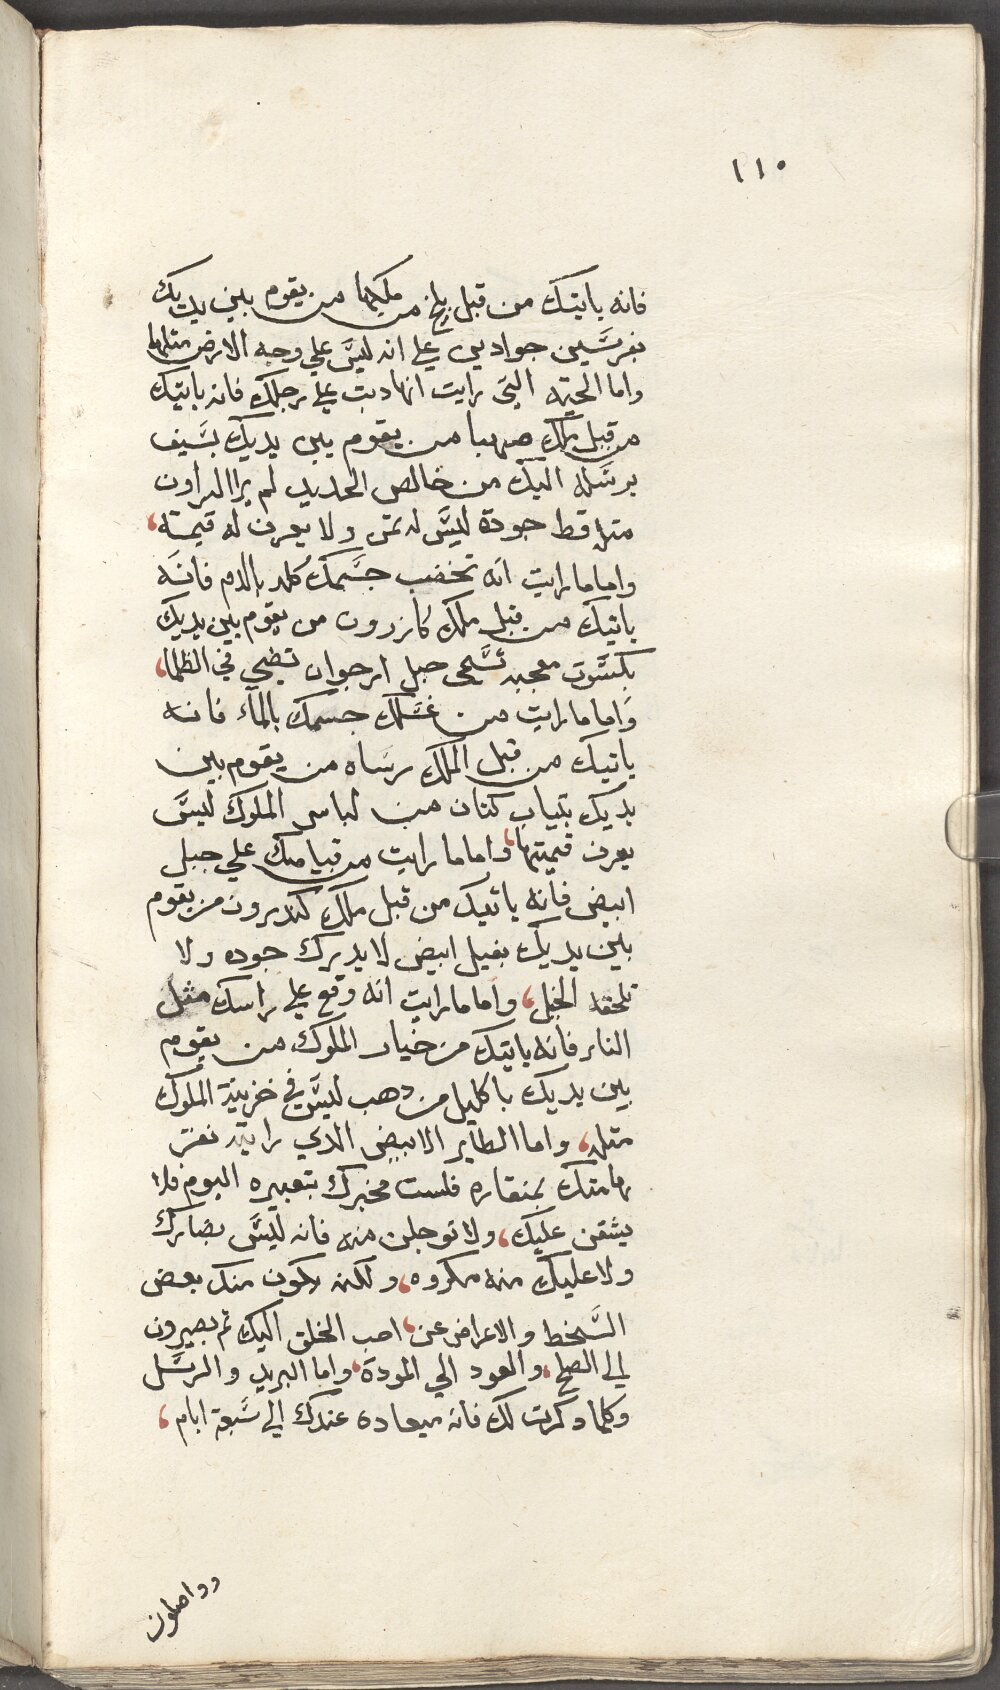 ١١٠
فانه ياتيك من قبل بلخ من ملكها من يقوم بين يديك
بفرسين جوادين علي انه ليس علي وجه الارض مثلهما
واما الحيه التي رايت انها دبت علي رجلك فانه ياتيك
من قبل ملك صهبا من يقوم بين يديك بسيف
يرسله اليك من خالص الحديد لم يرا الراون
مثله قط جودة ليس له ثمن ولا يعرف له قيمة،
واما ما رايت انه تخضب جسمك كله بالدم فانه
ياتيك من قبل ملك كازرون من يقوم بين يديك
بكسوت معجبه تسمى حبل ارجوان تضي في الظلما،
واما ما رايت من غسلك جسمك بالمآء فانه
ياتيك من قبل الملك رساه من يقوم بين
يديك بتياب كتان من لباس الملوك ليس
يعرف قيمتها، واما ما رايت من قيامك علي جبل
ابيض فانه ياتيك من قبل ملك كندرون من يقوم
بين يديك بفيل ابيض لا يدرك جوده ولا
تلحقه الخيل، واما ما رايت انه وقع علي راسك مثل
النار فانه ياتيك من خيار الملوك من يقوم
بين يديك باكليل من دهب ليس في خزينة الملوك
مثله، واما الطاير الابيض الدي رايته نقر
هامتك بمنقاره فلست مخبرك بتعبيره اليوم فلا
يشقن عليك، ولا توجلن منه فانه ليس بضارك
ولا عليك منه مكروه، ولكنه يكون منك بعض
السخط والاعراض عن، احب الخلق اليك تم يصيرون
الي الصلح، والعود الي المودة، واما البريد والرسل
وكلما دكرت لك فانه ميعاده عندك الي سبعة ايام،